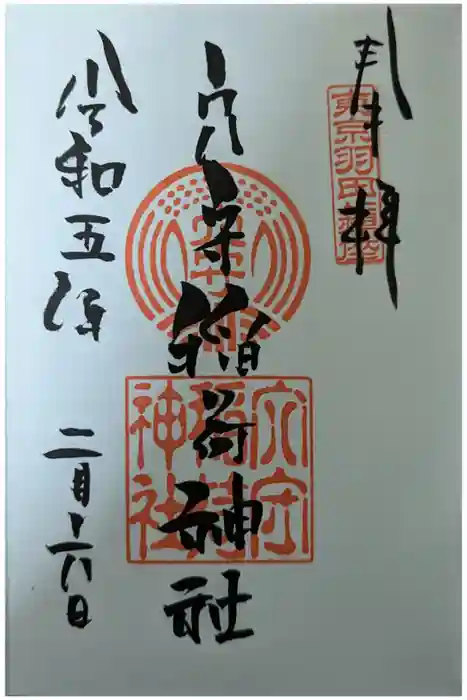 奉拝
東京羽田鎮座
穴守稲荷神社
穴守
稲荷
神社
令和五年
二月十六日